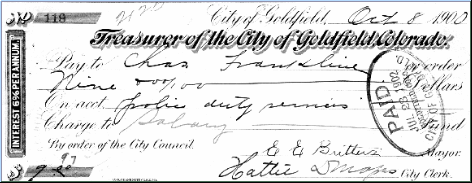 No 118 City of Goldfield, Oct 8, 1900
Treasurer of the City of Goldfield, Colorado.
Pay to Chas Franklin or order
Nine no/100 Dollars
On acct. police duty services
Charge to Salary Fund
By order of the City Council.
E E Britton Mayor.
$9.00 Hattie City Clerk.
INTEREST 6% PER ANNUM
PAID
JUL 23 1902
CITY OF